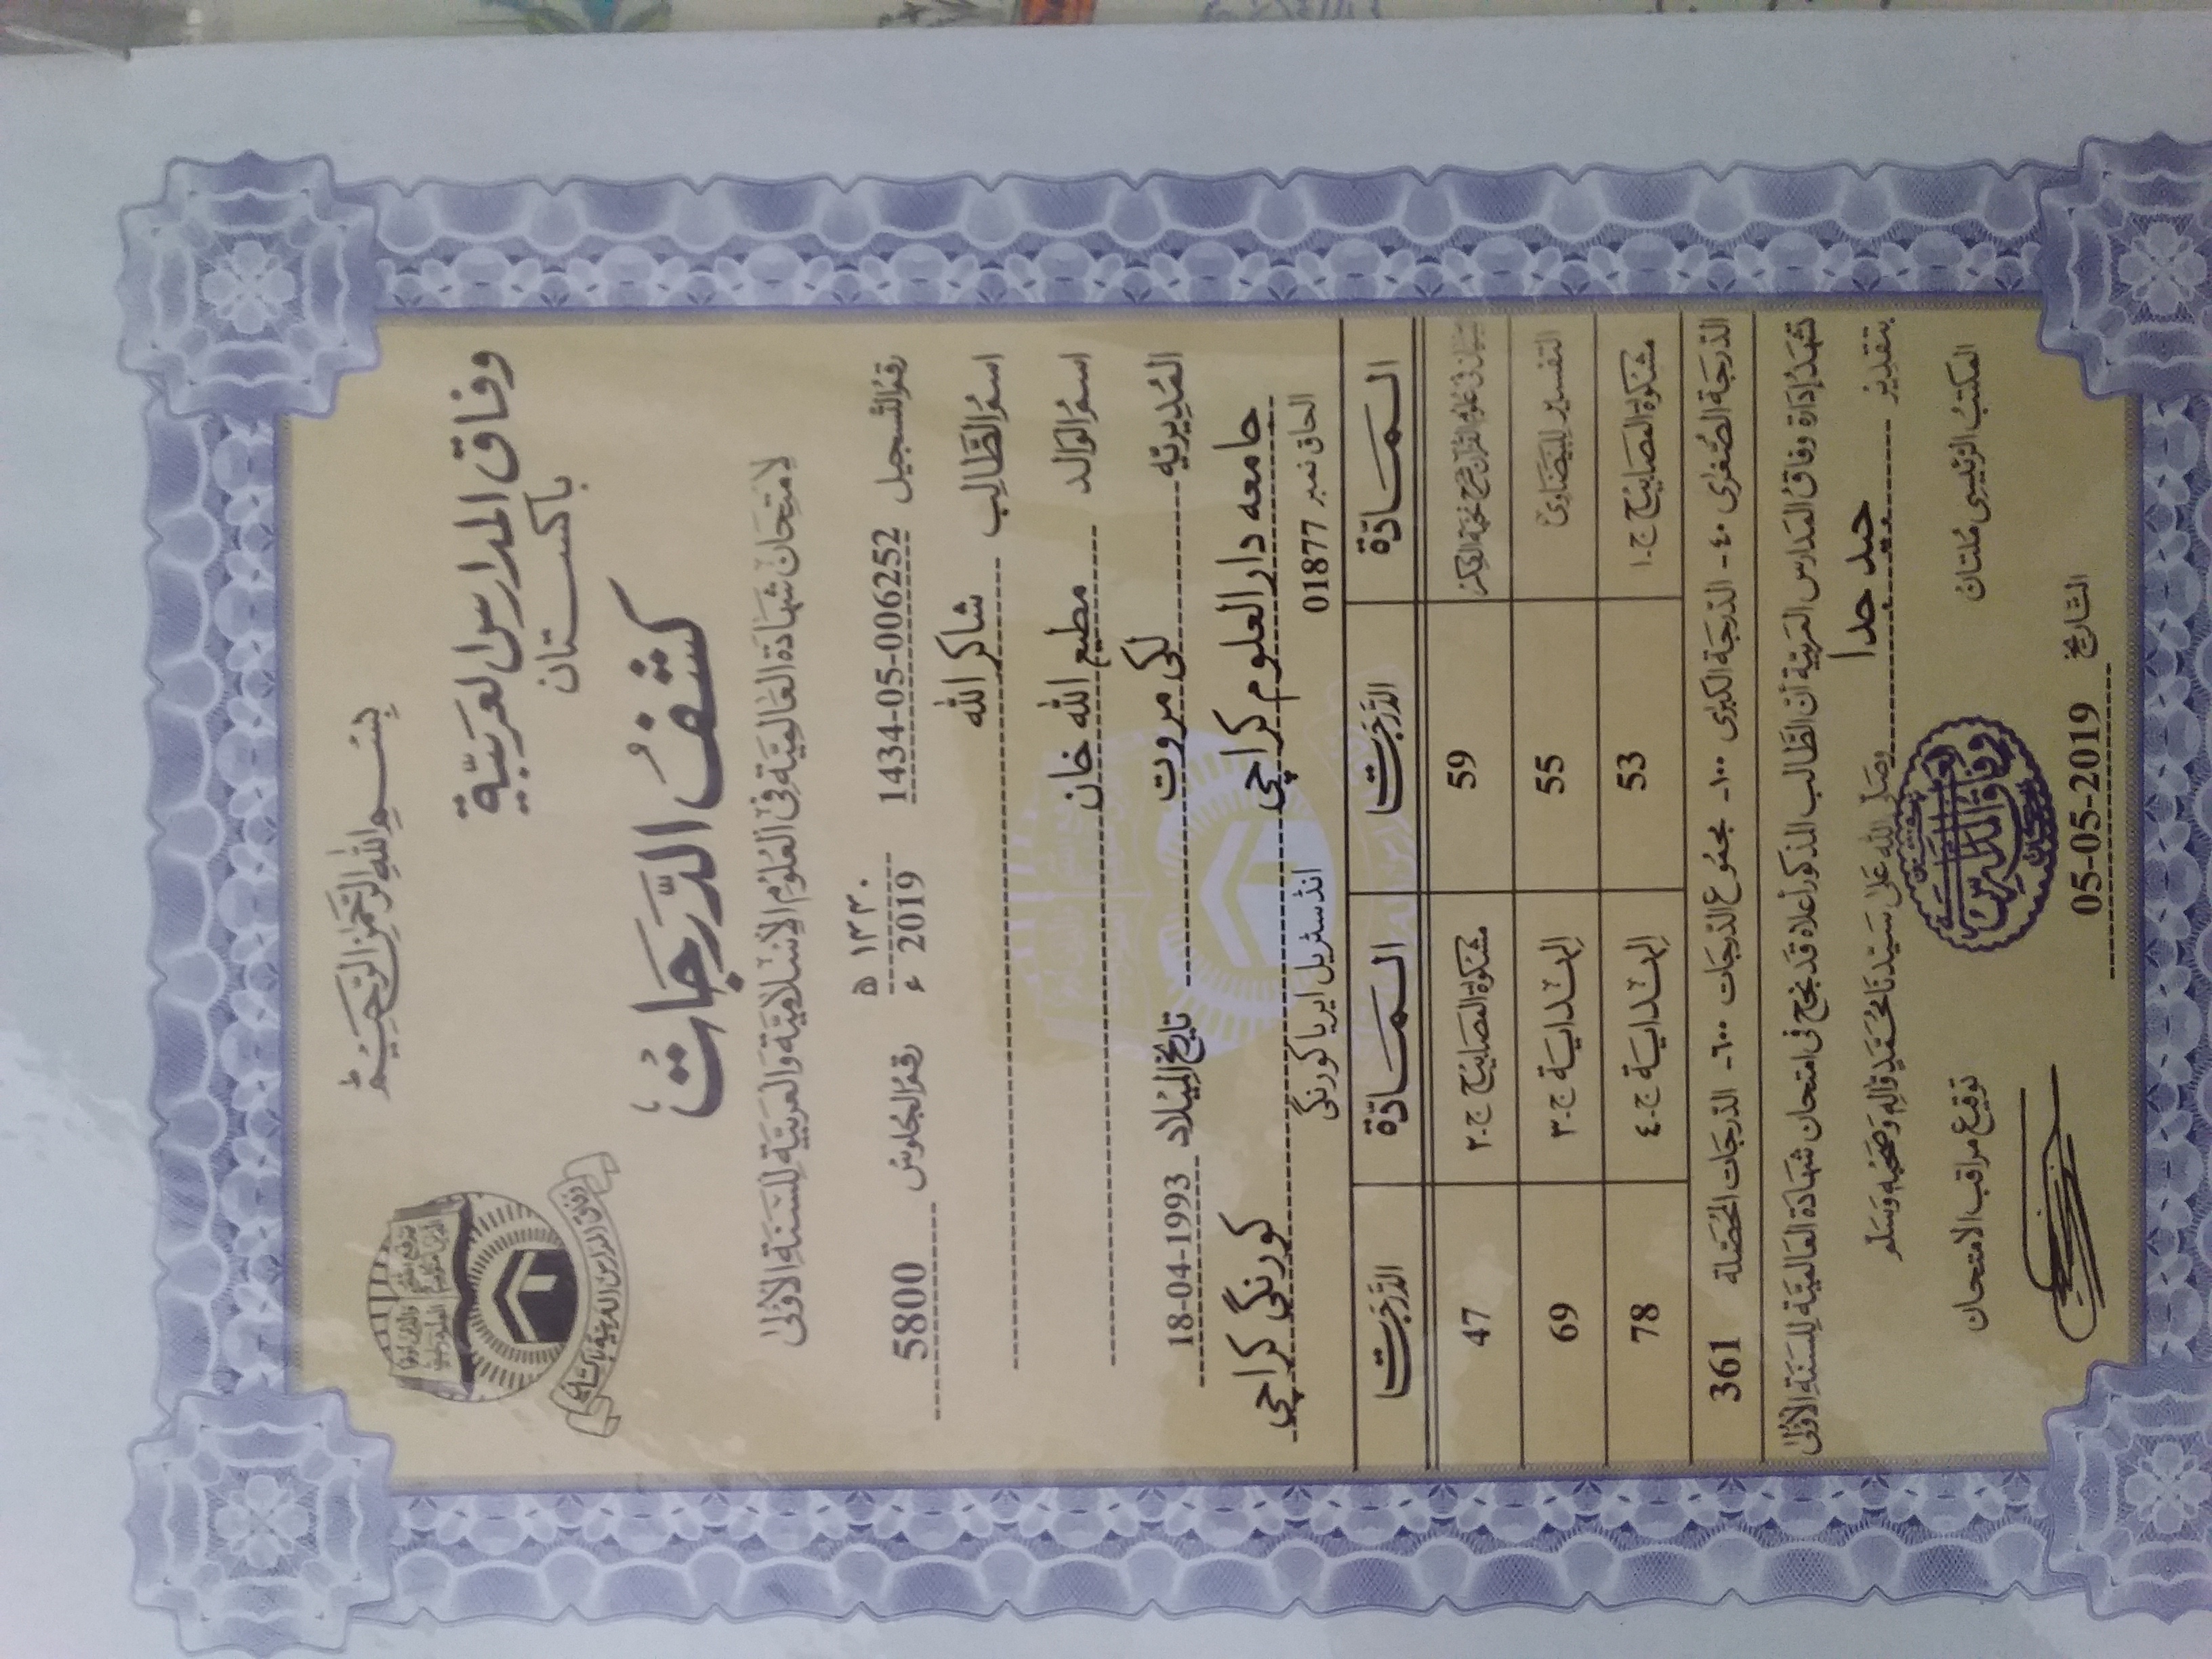 بِسْمِ اللهِ الرَّحْمٰنِ الرَّحِيْمِ
وفاق المدارس العربيّة
باكستان
كَشْفُ الدَّرَجَاتِ
لِامْتِحَانِ شَهَادَةِ العَالَمِيَّةِ فِي العُلُوْمِ الإِسْلَامِيَّةِ وَالعَرَبِيَّةِ لِلسَّنَةِ الأُوْلٰى
رقمُ التّسجيل 1434-05-006252 ١٣٣٠ ه
2019 ء رقم الجلوس 5800
اسمُ الطَّالِب شاكر الله
اسمُ الوَالد مطيع الله خان
المُديريّه لكى مروت تاريخ الميلاد 18-04-1993
جامعه دار العلوم كراچى كورنگى كراچى
الحاق نمبر 01877 انڈسٹریل ایریا کورنگی
المَادّة الدَّرَجَات المَادّة الدَّرَجَات
59 مشكوة المصابيح ج-٢ 47
التفسير للبيضاوى 55 الهداية ج-٣ 69
مشكوة المصابيح ج-١ 53 الهداية ج-٤ 78
الدّرجة الصُّغرٰى ٤٠- الدّرجَة الكبرٰى ١٠٠- مجمُوع الدّرجَات ٦٠٠- الدّرجَات المُحَصّلة 361
تشهَدُ إدَارة وفاقُ المَدَارس العَربيّة أنّ الطّالب المذكور أعلَاه قد نجح فى امتحان شهَادَة العَالميّة لِلسّنَة الأوْلٰى
بتقدير جيد جدا وصَلّى الله عَلٰى سَيّدنَا مُحَمّد وَّاٰلِهٖ وَصَحْبِهٖ وَسَلّم
المكتبُ الرّئيسى مُلتان توقيع مراقب الامتحان
التّاريخ 05-05-2019